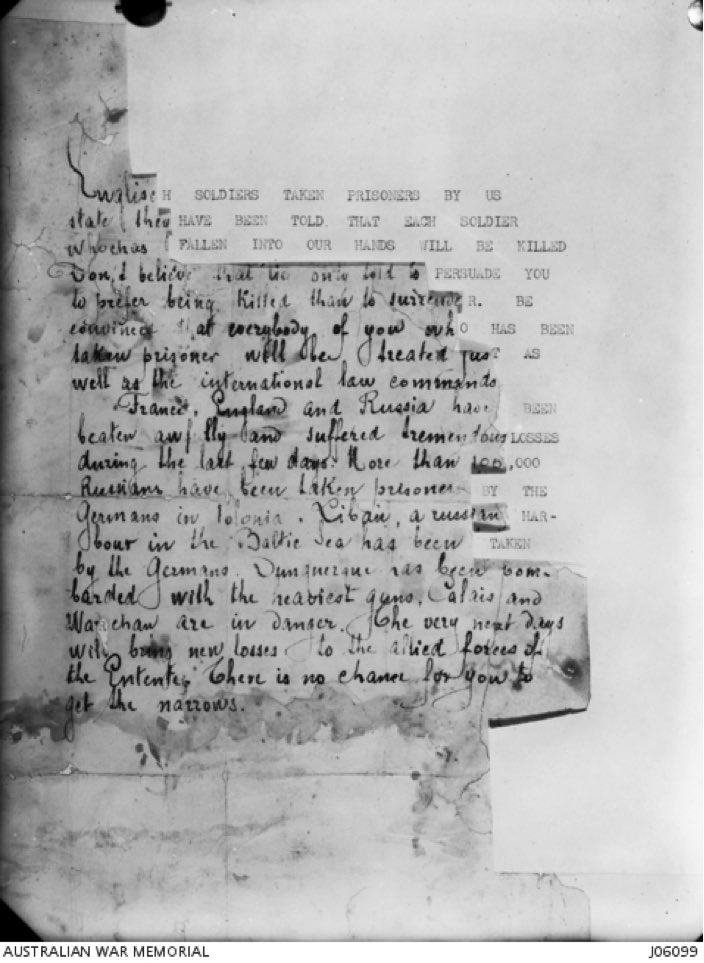 English SOLDIERS TAKEN PRISONERS BY US
state they HAVE BEEN TOLD THAT EACH SOLDIER
who has FALLEN INTO OUR HANDS WILL BE KILLED
Don,t believe that lie only told to PERSUADE YOU
to prefer being killed than to surrendeR. BE
convinced that everybody of you whO HAS BEEN
taken prisoner will be treated jusT AS
well as the international law commands
France, England and Russia have BEEN
beaten awfully and suffered tremendous LOSSES
during the last few days. More than 100,000
Russians have been taken prisoner BY THE
Germans in Polonia. Libau, a russian HAR-
bour in the Baltic Sea has been TAKEN
by the Germans. Dunquerque has been bom-
barded with the heaviest guns. Calais and
are in danger. The very next days
will bring new losses to the allied forces of
the Entente. There is no chance for you to
get the narrows.
AUSTRALIAN WAR MEMORIAL
J06099